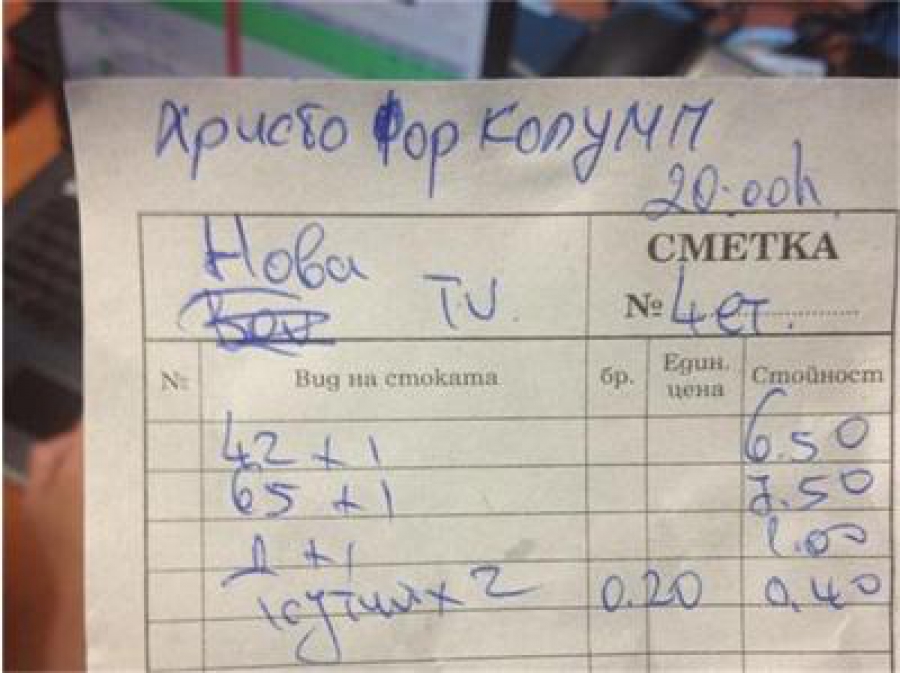 Христо Фор Колумп
20:00h
Нова
TV.
СМЕТКА
№ 4 ет.
№ Вид на стоката бр. Един. цена Стойност
42 x 1 6.50
65 x 1 7.50
1 x 1 1.00
кутии x 2 0.20 0.40